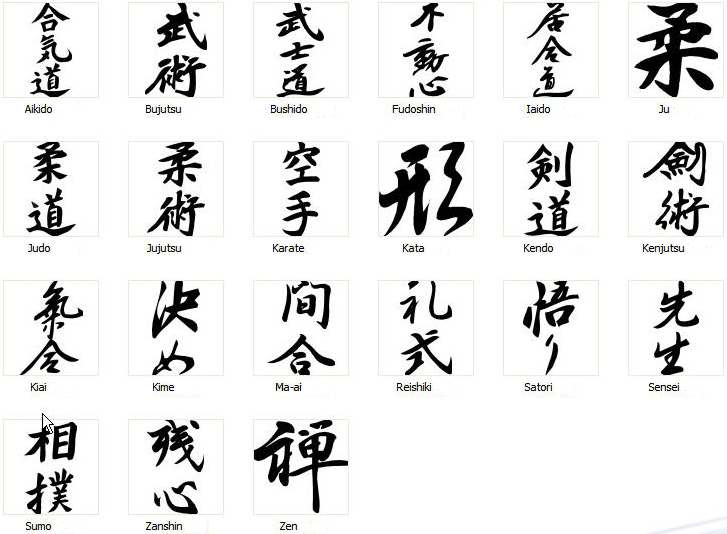 合気道 武術 武士道 不動心 居合道 柔
Aikido Bujutsu Bushido Fudoshin Iaido Ju
柔道 柔術 空手 形 剣道 劍術
Judo Jujutsu Karate Kata Kendo Kenjutsu
氣合 決め 間合 礼式 悟り 先生
Kiai Kime Ma-ai Reishiki Satori Sensei
相撲 残心 禅
Sumo Zanshin Zen